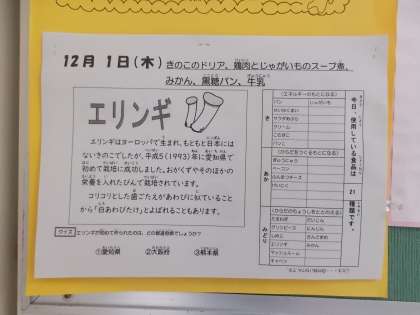 12月 1日(木) きのこのドリア、鶏肉とじゃがいものスープ煮、
みかん、黒糖パン、牛乳
エリンギ
エリンギはヨーロッパで生まれ、もともと日本には
ないきのこでしたが、平成5(1993)年に愛知県で
初めて栽培に成功しました。おがくずやそのほかの
栄養を入れたびんで栽培されています。
コリコリとした歯ごたえがあわびに似ていること
から「白あわびたけ」とよばれることもあります。
クイズ エリンギが初めて作られたのは、どの都道府県でしょうか?
①愛知県 ②大阪府 ③熊本県
今日、使用している食品は
21
種類です。
き
(エネルギーのもとになる)
パン
じゃがいも
サラダあぶら
クリーム
こむぎこ
パンこ
あか
(からだをつくるもとになる)
ぎゅうにゅう
ベーコン
とりにく
みどり
(からだのちょうしをととのえる)
たまねぎ
グリンピース
にんじん
しめじ
エリンギ
みかん
マッシュルーム
キャベツ